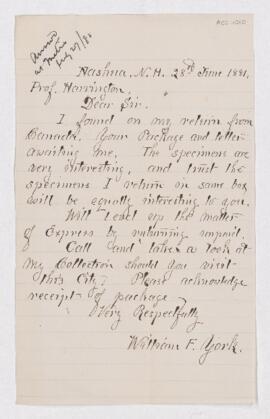 ACC-1260
July 27/81
Nashua, N.H. 28th June 1881,
Prof. Harrington,
Dear Sir.
I found on my return from
Canada, Your Package and letter
awaiting me. The specimens are
very interesting, and trust the
specimens I return in same box
will be equally interesting to you.
Will Level up the matter
of Express by returning unpaid.
Call and take a look at
my Collection should you visit
this City; Please acknowledge
receipt of package,
Very Respectfully
William F. York.